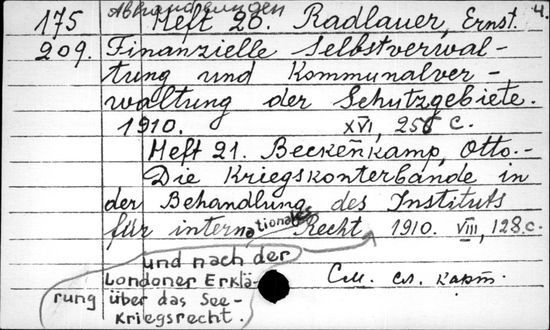 Abhandlungen 4.
175 Heft 20. Radlauer, Ernst.
209. Finanzielle Selbstverwal-
tung und Kommunalver-
waltung der Schutzgebiete.
1910. XVI, 256 с.
Heft 21. Beckenkamp, Otto.-
Die Kriegskonterbande in
der Behandlung des Instituts
für internationales Recht, 1910. VIII, 128 с.
und nach der
Londoner Erklä-
rung über das See-
kriegsrecht.
См. сл. карт.